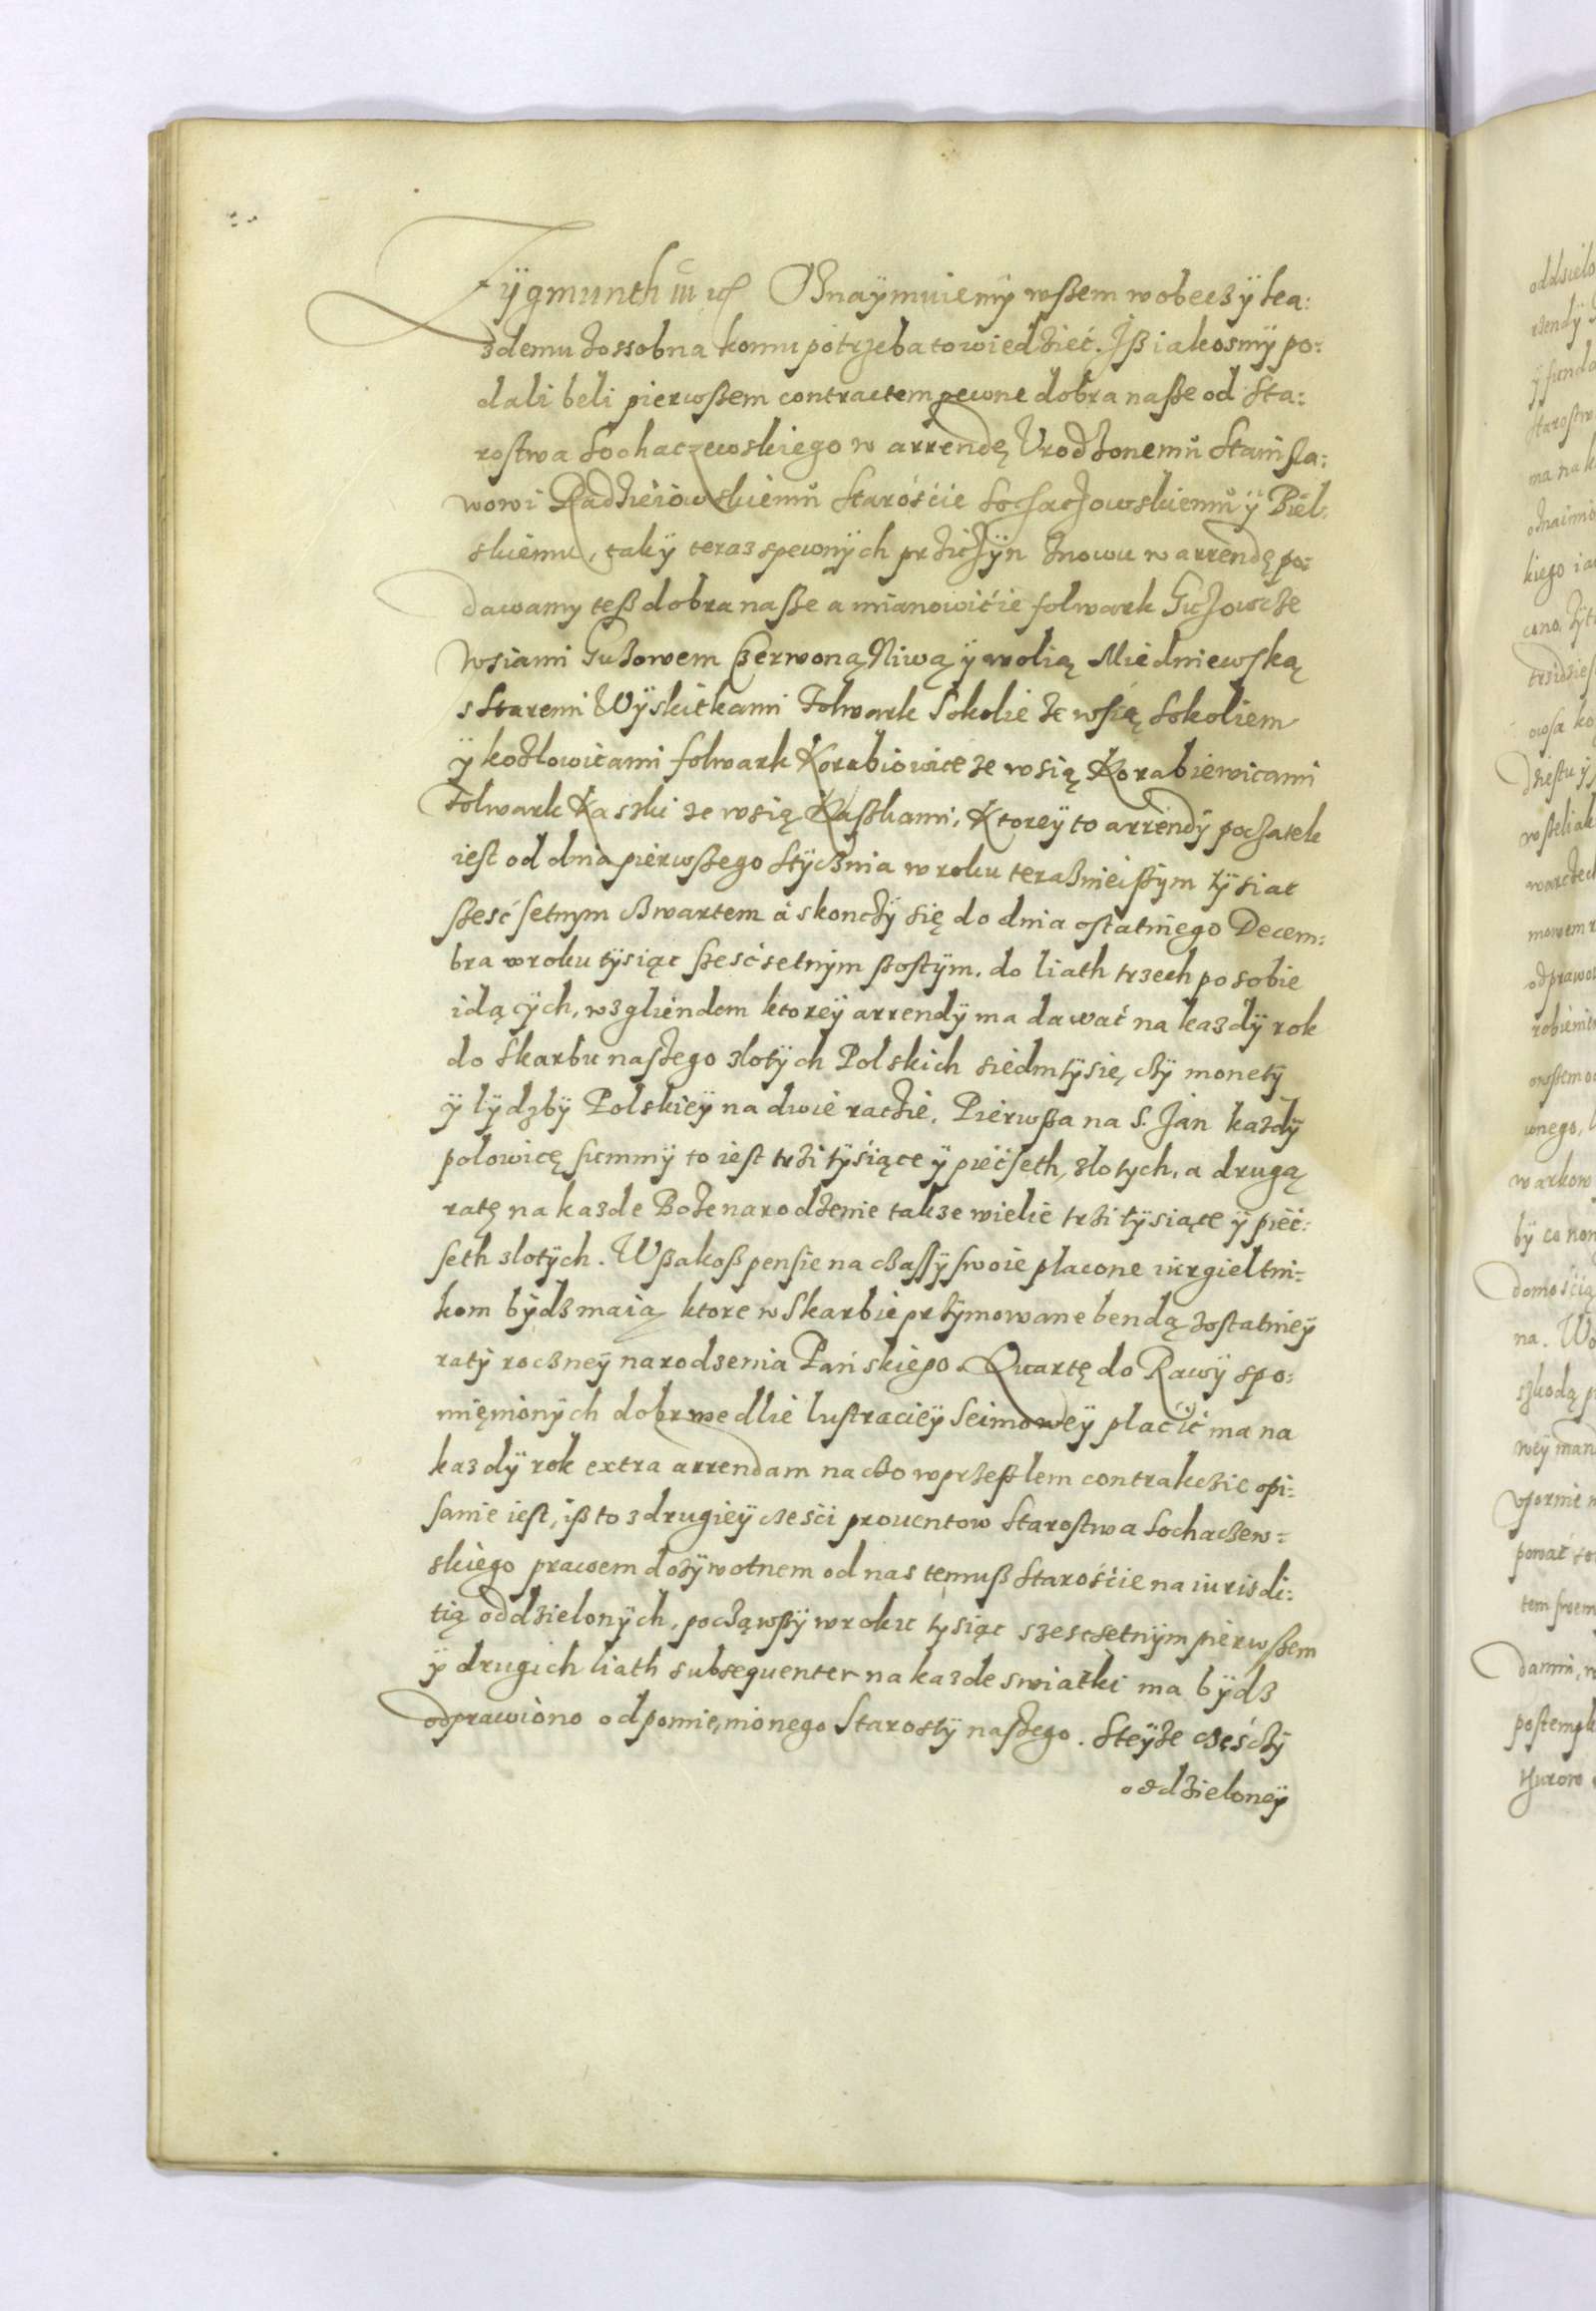 Zÿgmunth III etc Oznaÿmuiemÿ wßem wobecz ÿ ka:
zdemu zossobna komu potrzeba to wiedzieć. Iß iakosmÿ po:
dali beli pierwßem contractem pewne dobra naße od Sta:
rostwa Sochaczewskiego w arrendę Urodzonemu Stanisła:
wowi Radzieiowskiemu Staroście Sochaczowskiemu ÿ Biel:
skiemu, tak ÿ teraz spewnÿch prziczÿn znowu w arrendę po:
dawamy teß dobra naße a mianowićie folwark Guzow ze
Wsiami Guzowem Czerwoną Niwą ÿ wolią Miedniewską
s Staremi Wÿskitkami Folwark Sokolie ze wsią Sokoliem
ÿ kozlowicami folwark Korabiowice ze wsią Korabiewicami
Folwark Kaszki ze wsią Kaßkami, Ktoreÿ to arrendÿ poczatek
iest od dnia pierwßego Stÿcznia w roku teraznieißym tÿsiac
ßesćsetnym czwartem á skonczÿ się do dnia ostatniego Decem:
bra w roku tÿsiąc ßesćsetnÿm ßostÿm. do liath trzech po sobie
idącÿch, wzgliendem ktoreÿ arrendÿ ma dawać na kazdÿ rok
do skarbu naszego zlotÿch Polskich siedmtÿsięczÿ monetÿ
ÿ lÿdzbÿ Polskieÿ na dwie raczie. Pierwßa na S. Jan kazdÿ
polowicę summÿ to iest trzi tÿsiące ÿ piećseth zlotych, a drugą
ratę na kazde Boze narodzenie takze wielie trzi tÿsiące ÿ pieć:
seth zlotÿch. Wßakoß pensie na czassÿ swoie placone iurgieltni:
kom bÿdz maią ktore w Skarbie przÿmowane bendą zostatnieÿ
ratÿ roczneÿ narodzenia Pańskiego. Quartę do Rawÿ spo:
mięnionÿch dobr wedlie lustracieÿ Seimoweÿ placić ma na
kazdÿ rok extra arrendam na czo w przeßlem contrakczie opi:
sanie iest, iß to z drugieÿ czesci prouentow Starostwa Sochaczew:
skiego prawem dozÿwotnem od nas temuß Staroście na iurisdi:
tią oddzielonÿch, począwßÿ w roku tysiąc szescsetnÿm pierwßem
ÿ drugich liath subsequenter na kazde swiatki ma bÿdz
odprawiono od pomięnionego Starostÿ naszego. Steÿze częśczÿ
oddzieloneÿ